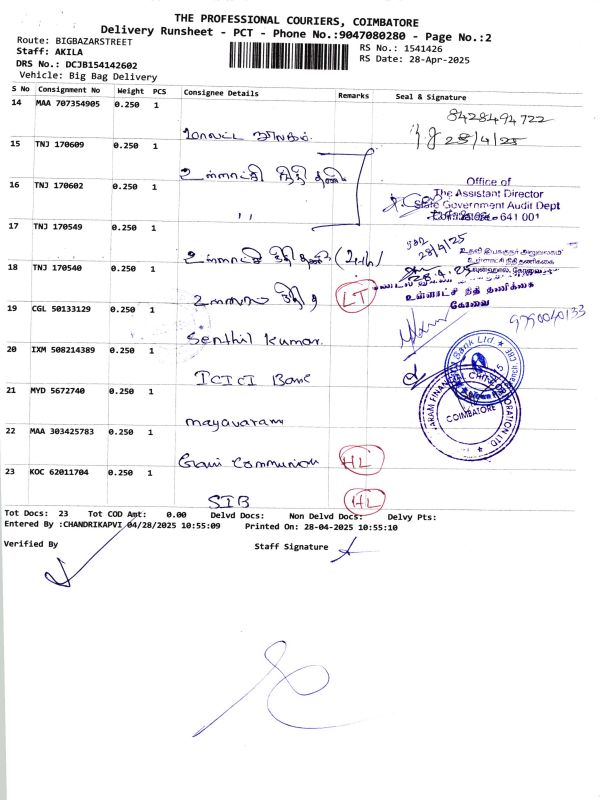 THE PROFESSIONAL COURIERS, COIMBATORE
Delivery Runsheet - PCT - Phone No.:9047080280 - Page No.:2
Route: BIGBAZARSTREET
Staff: AKILA
DRS No.: DCJB154142602
Vehicle: Big Bag Delivery
RS No.: 1541426
RS Date: 28-Apr-2025
S No Consignment No Weight PCS Consignee Details Remarks Seal & Signature
14 MAA 707354905 0.250 1
8428494722
28/4/25
15 TNJ 170609 0.250 1
உள்ளாட்சி நிதி தணி
16 TNJ 170602 0.250 1
,,
Office of
The Assistant Director
State Government Audit Dept
Coimbatore-641 001
17 TNJ 170549 0.250 1
உள்ளாட்சி நிதி தணி
28/4/25
உதவி இயக்குநர் அலுவலகம்
உள்ளாட்சி நிதி தணிக்கை
18 TNJ 170540 0.250 1
LT
28.4.25
உள்ளாட்சி நிதி தணிக்கை
கோவை
19 CGL 50133129 0.250 1
Senthil Kumar
20 IXM 508214389 0.250 1
ICICI Bank
21 MYD 5672740 0.250 1
mayavaram
COIMBATORE
22 MAA 303425783 0.250 1
HL
23 KOC 62011704 0.250 1
SIB
HL
Tot Docs: 23 Tot COD Amt: 0.00 Delvd Docs: Non Delvd Docs: Delvy Pts:
Entered By :CHANDRIKAPVI 04/28/2025 10:55:09 Printed On: 28-04-2025 10:55:10
Verified By Staff Signature